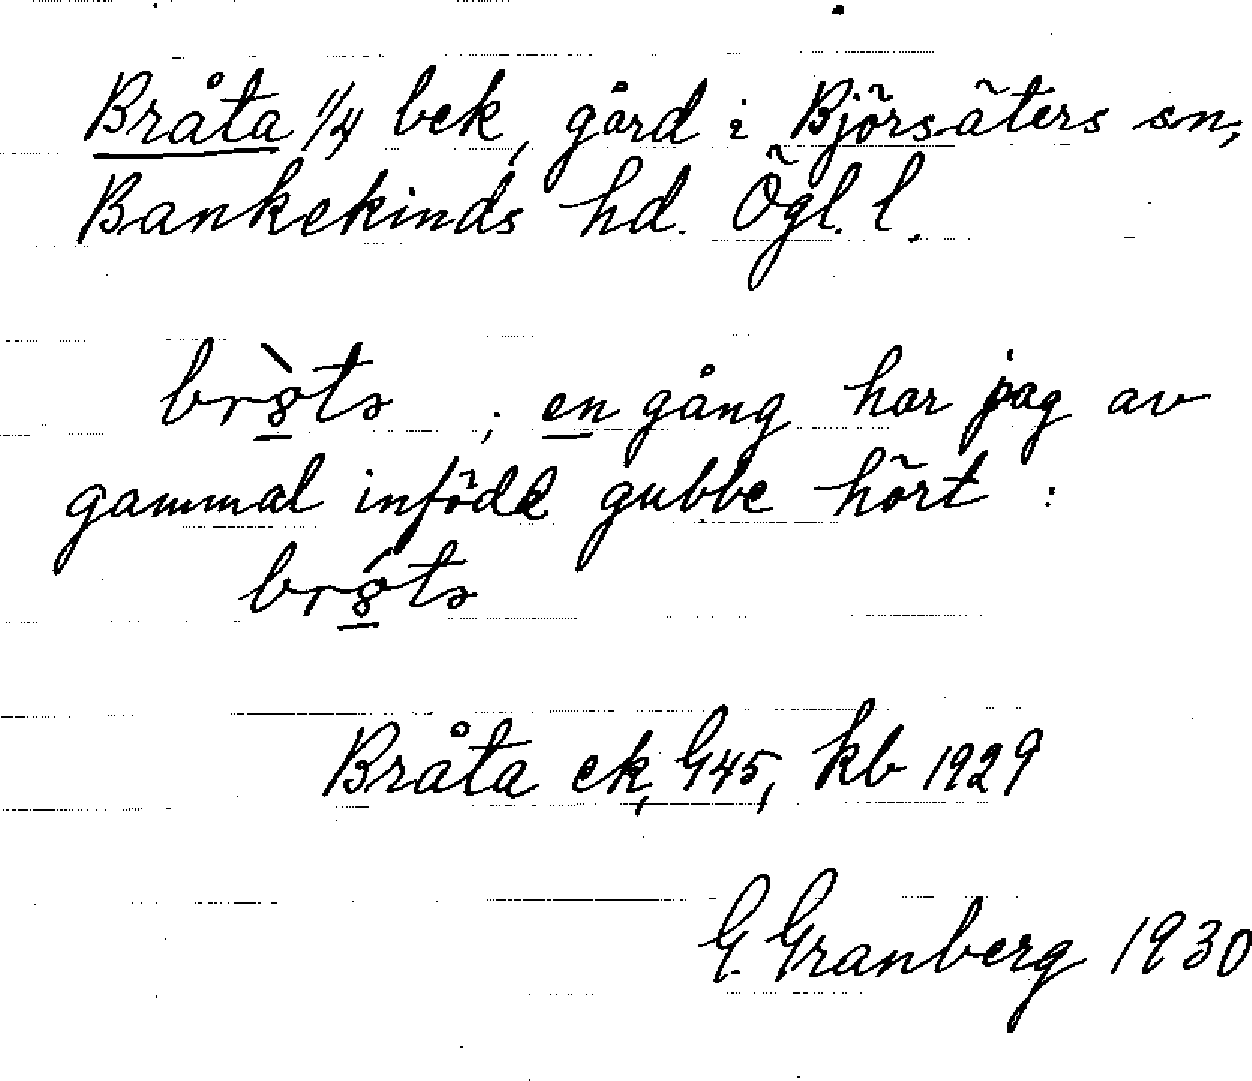 Bråta 1/4 bek, gård i Björsäters sn,
Bankekinds hd. Ögl. l.
; en gång har jag av
gammal infödd gubbe hört :
Bråta ek, G45, kb 1929
G. Granberg 1930